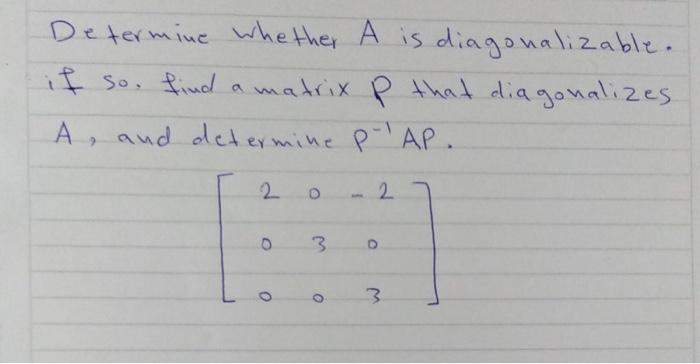 Determine whether A is diagonalizable.
if so. find a matrix P that diagonalizes
A, and determine P⁻¹AP.
2 0 -2
0 3 0
0 0 3